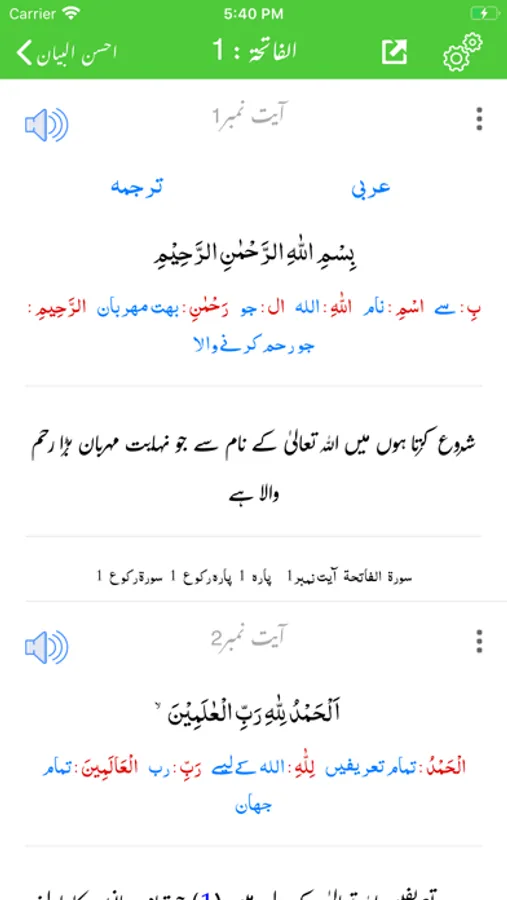 Carrier 5:40 PM
احسن البیان الفاتحة : 1
آیت نمبر1
عربی ترجمه
بِسْمِ اللّٰهِ الرَّحْمٰنِ الرَّحِیْمِ
بِ: سے اسْمِ: نام اللّٰهِ: الله ال: جو رَحْمٰنِ: بهت مهربان الرَّحِیمِ:
جو رحم کرنے والا
شروع کرتا ہوں میں اللہ تعالیٰ کے نام سے جو نہایت مہربان بڑا رحم
والا ہے
سورة الفاتحة آیت نمبر1 پاره 1 پاره رکوع 1 سورة رکوع 1
آیت نمبر2
اَلْحَمْدُ لِلّٰهِ رَبِّ الْعٰلَمِیْنَ ۙ
الْحَمْدُ: تمام تعریفیں لِلّٰهِ: الله کے لیے رَبِّ: رب الْعَالَمِینَ: تمام
جهان